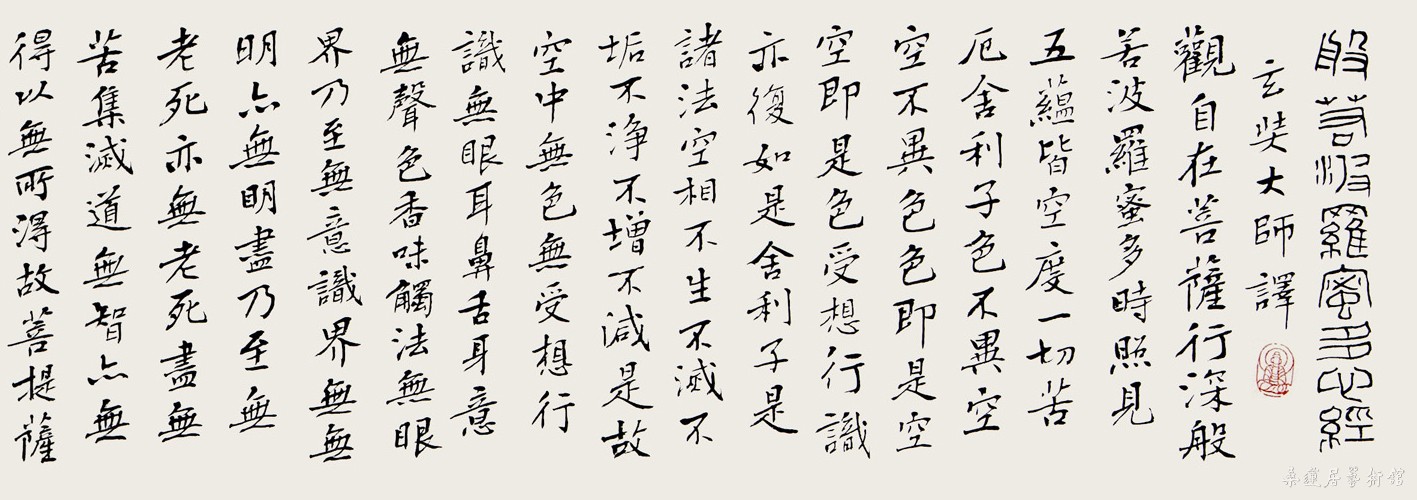 般若波羅蜜多心經
玄奘大師譯
觀自在菩薩行深般
若波羅蜜多時照見
五蘊皆空度一切苦
厄舍利子色不異空
空不異色色即是空
空即是色受想行識
亦復如是舍利子是
諸法空相不生不滅不
垢不淨不增不減是故
空中無色無受想行
識無眼耳鼻舌身意
無聲色香味觸法無眼
界乃至無意識界無無
明亦無明盡乃至無
老死亦無老死盡無
苦集滅道無智亦無
得以無所得故菩提薩
桑蓮居藝術館